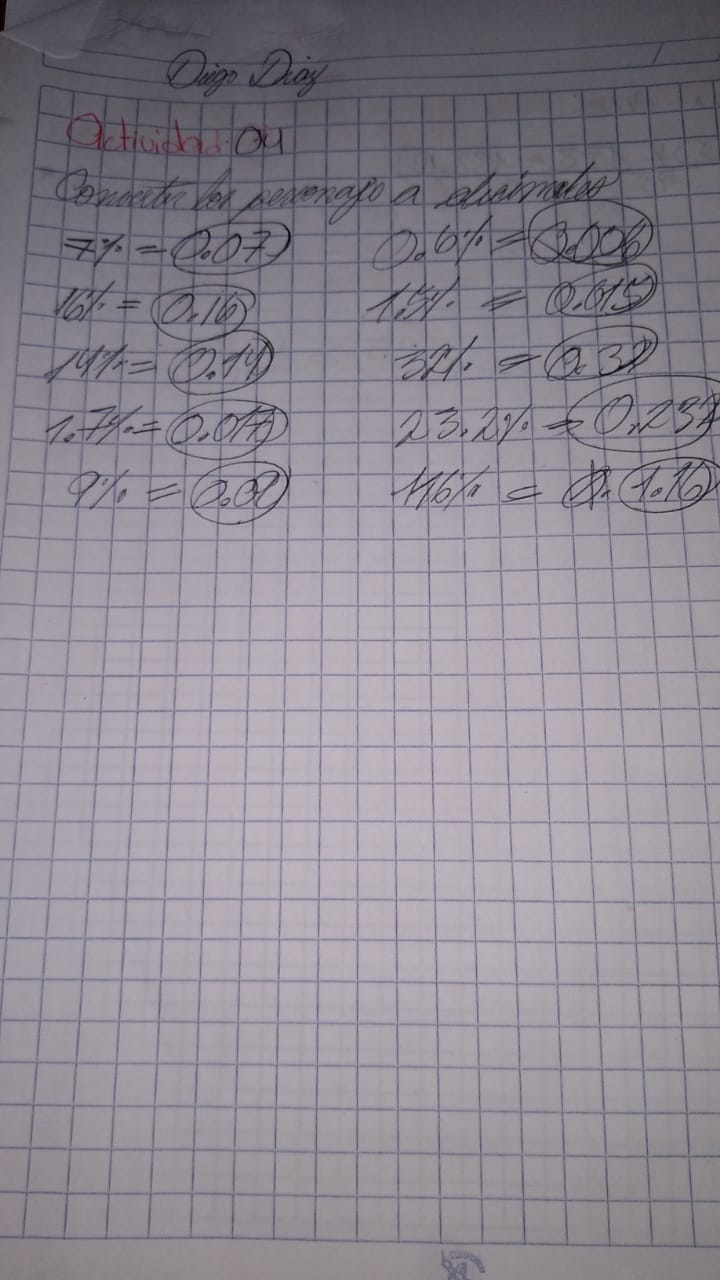 Diego Diaz
Actividad. 04
Convertir los porcentajes a decimales
7% = 0.07 0.6% = 0.006
16% = 0.16 1.5% = 0.015
14% = 0.14 32% = 0.32
1.7% = 0.017 23.2% = 0.232
9% = 0.09 116% = 1.16